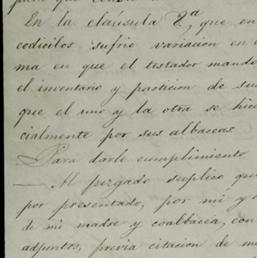 En la cláusula 2ª, que en
codicilos sufrió variacion en
ma en que el testador mandó
el inventario y particion de su
que el uno y la otra se hic
cialmente por sus albaceas.
Para darle cumplimiento
Al juzgado suplico que
por presentado, por mí y
de mi madre y coalbacea, con
adjuntos, prévia citacion de